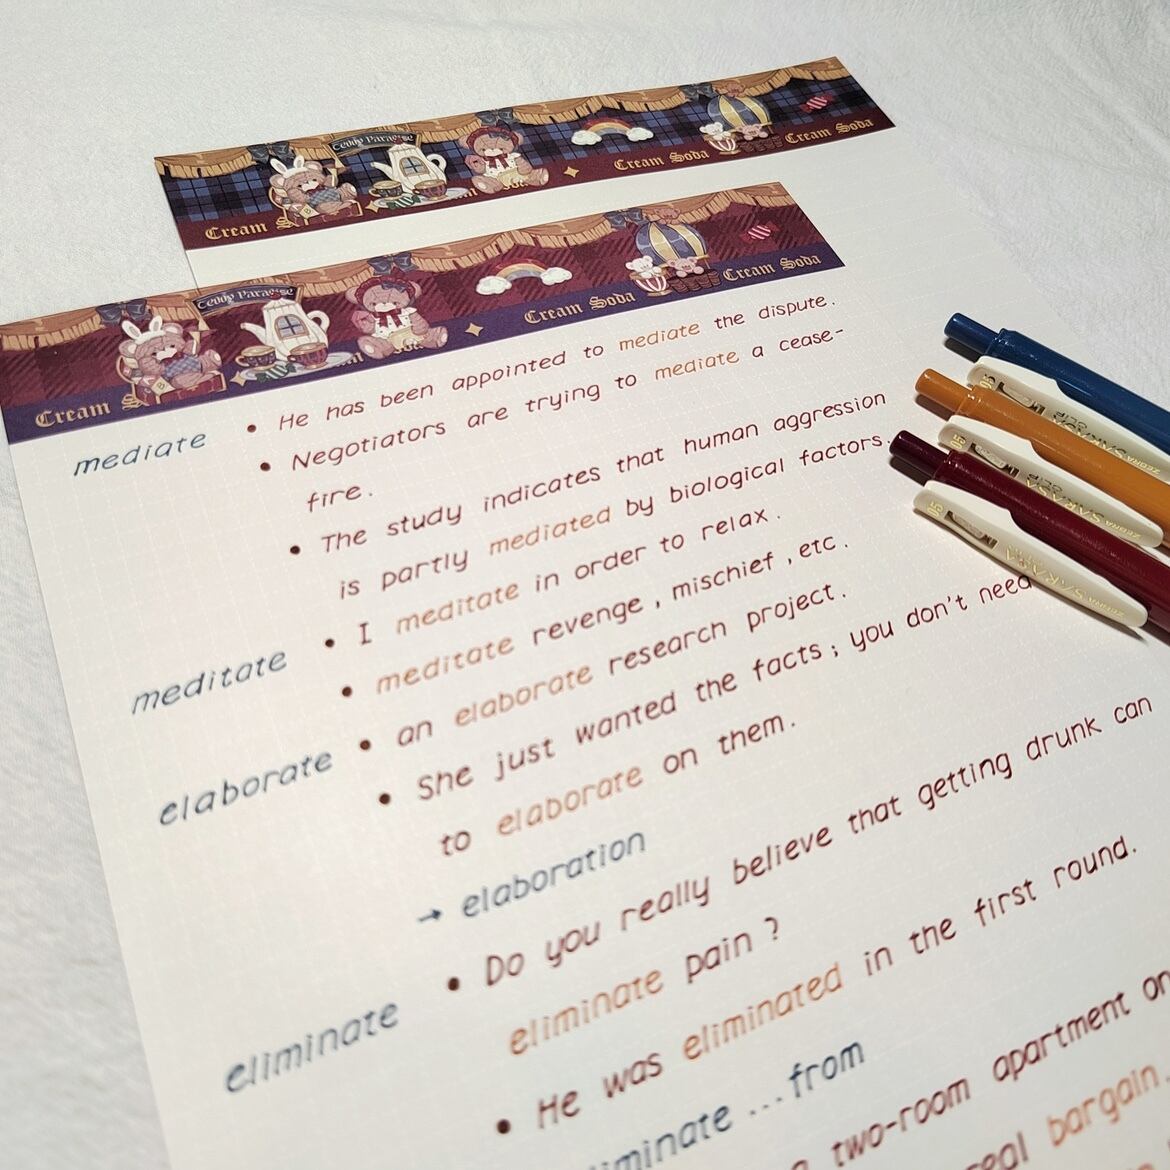 Teddy Paradise
Cream Soda
Cream Soda
Cream
Teddy Paradise
Cream Soda
Cream Soda
Cream
mediate
• He has been appointed to mediate the dispute.
• Negotiators are trying to mediate a cease-
fire.
• The study indicates that human aggression
is partly mediated by biological factors.
meditate
• I meditate in order to relax.
• meditate revenge, mischief, etc.
elaborate
• an elaborate research project.
• She just wanted the facts; you don't need
to elaborate on them.
→ elaboration
eliminate
• Do you really believe that getting drunk can
eliminate pain?
• He was eliminated in the first round.
...from
two-room apartment
bargain.
ZEBRA SARASA CLIP 0.5
ZEBRA SARASA CLIP 0.5
ZEBRA SARASA 0.5